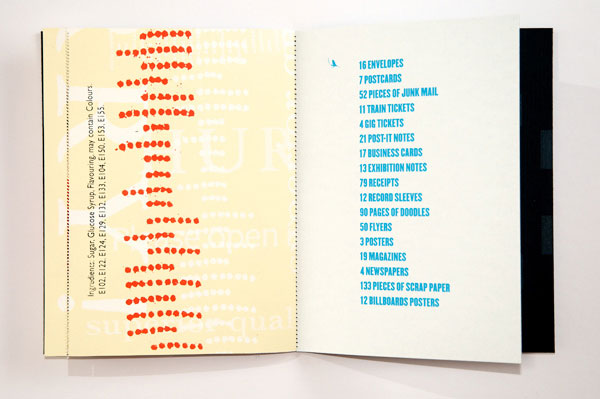 Ingredients: Sugar, Glucose Syrup, Flavouring, may contain Colours.
E102, E122, E124, E129, E132, E133, E104, E150, E153, E155.
TUR
open
qual
16 ENVELOPES
7 POSTCARDS
52 PIECES OF JUNK MAIL
11 TRAIN TICKETS
4 GIG TICKETS
21 POST-IT NOTES
17 BUSINESS CARDS
13 EXHIBITION NOTES
79 RECEIPTS
12 RECORD SLEEVES
90 PAGES OF DOODLES
50 FLYERS
3 POSTERS
19 MAGAZINES
4 NEWSPAPERS
133 PIECES OF SCRAP PAPER
12 BILLBOARDS POSTERS